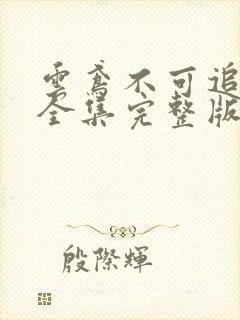 云鸢不可追
全集完整版
殷際輝